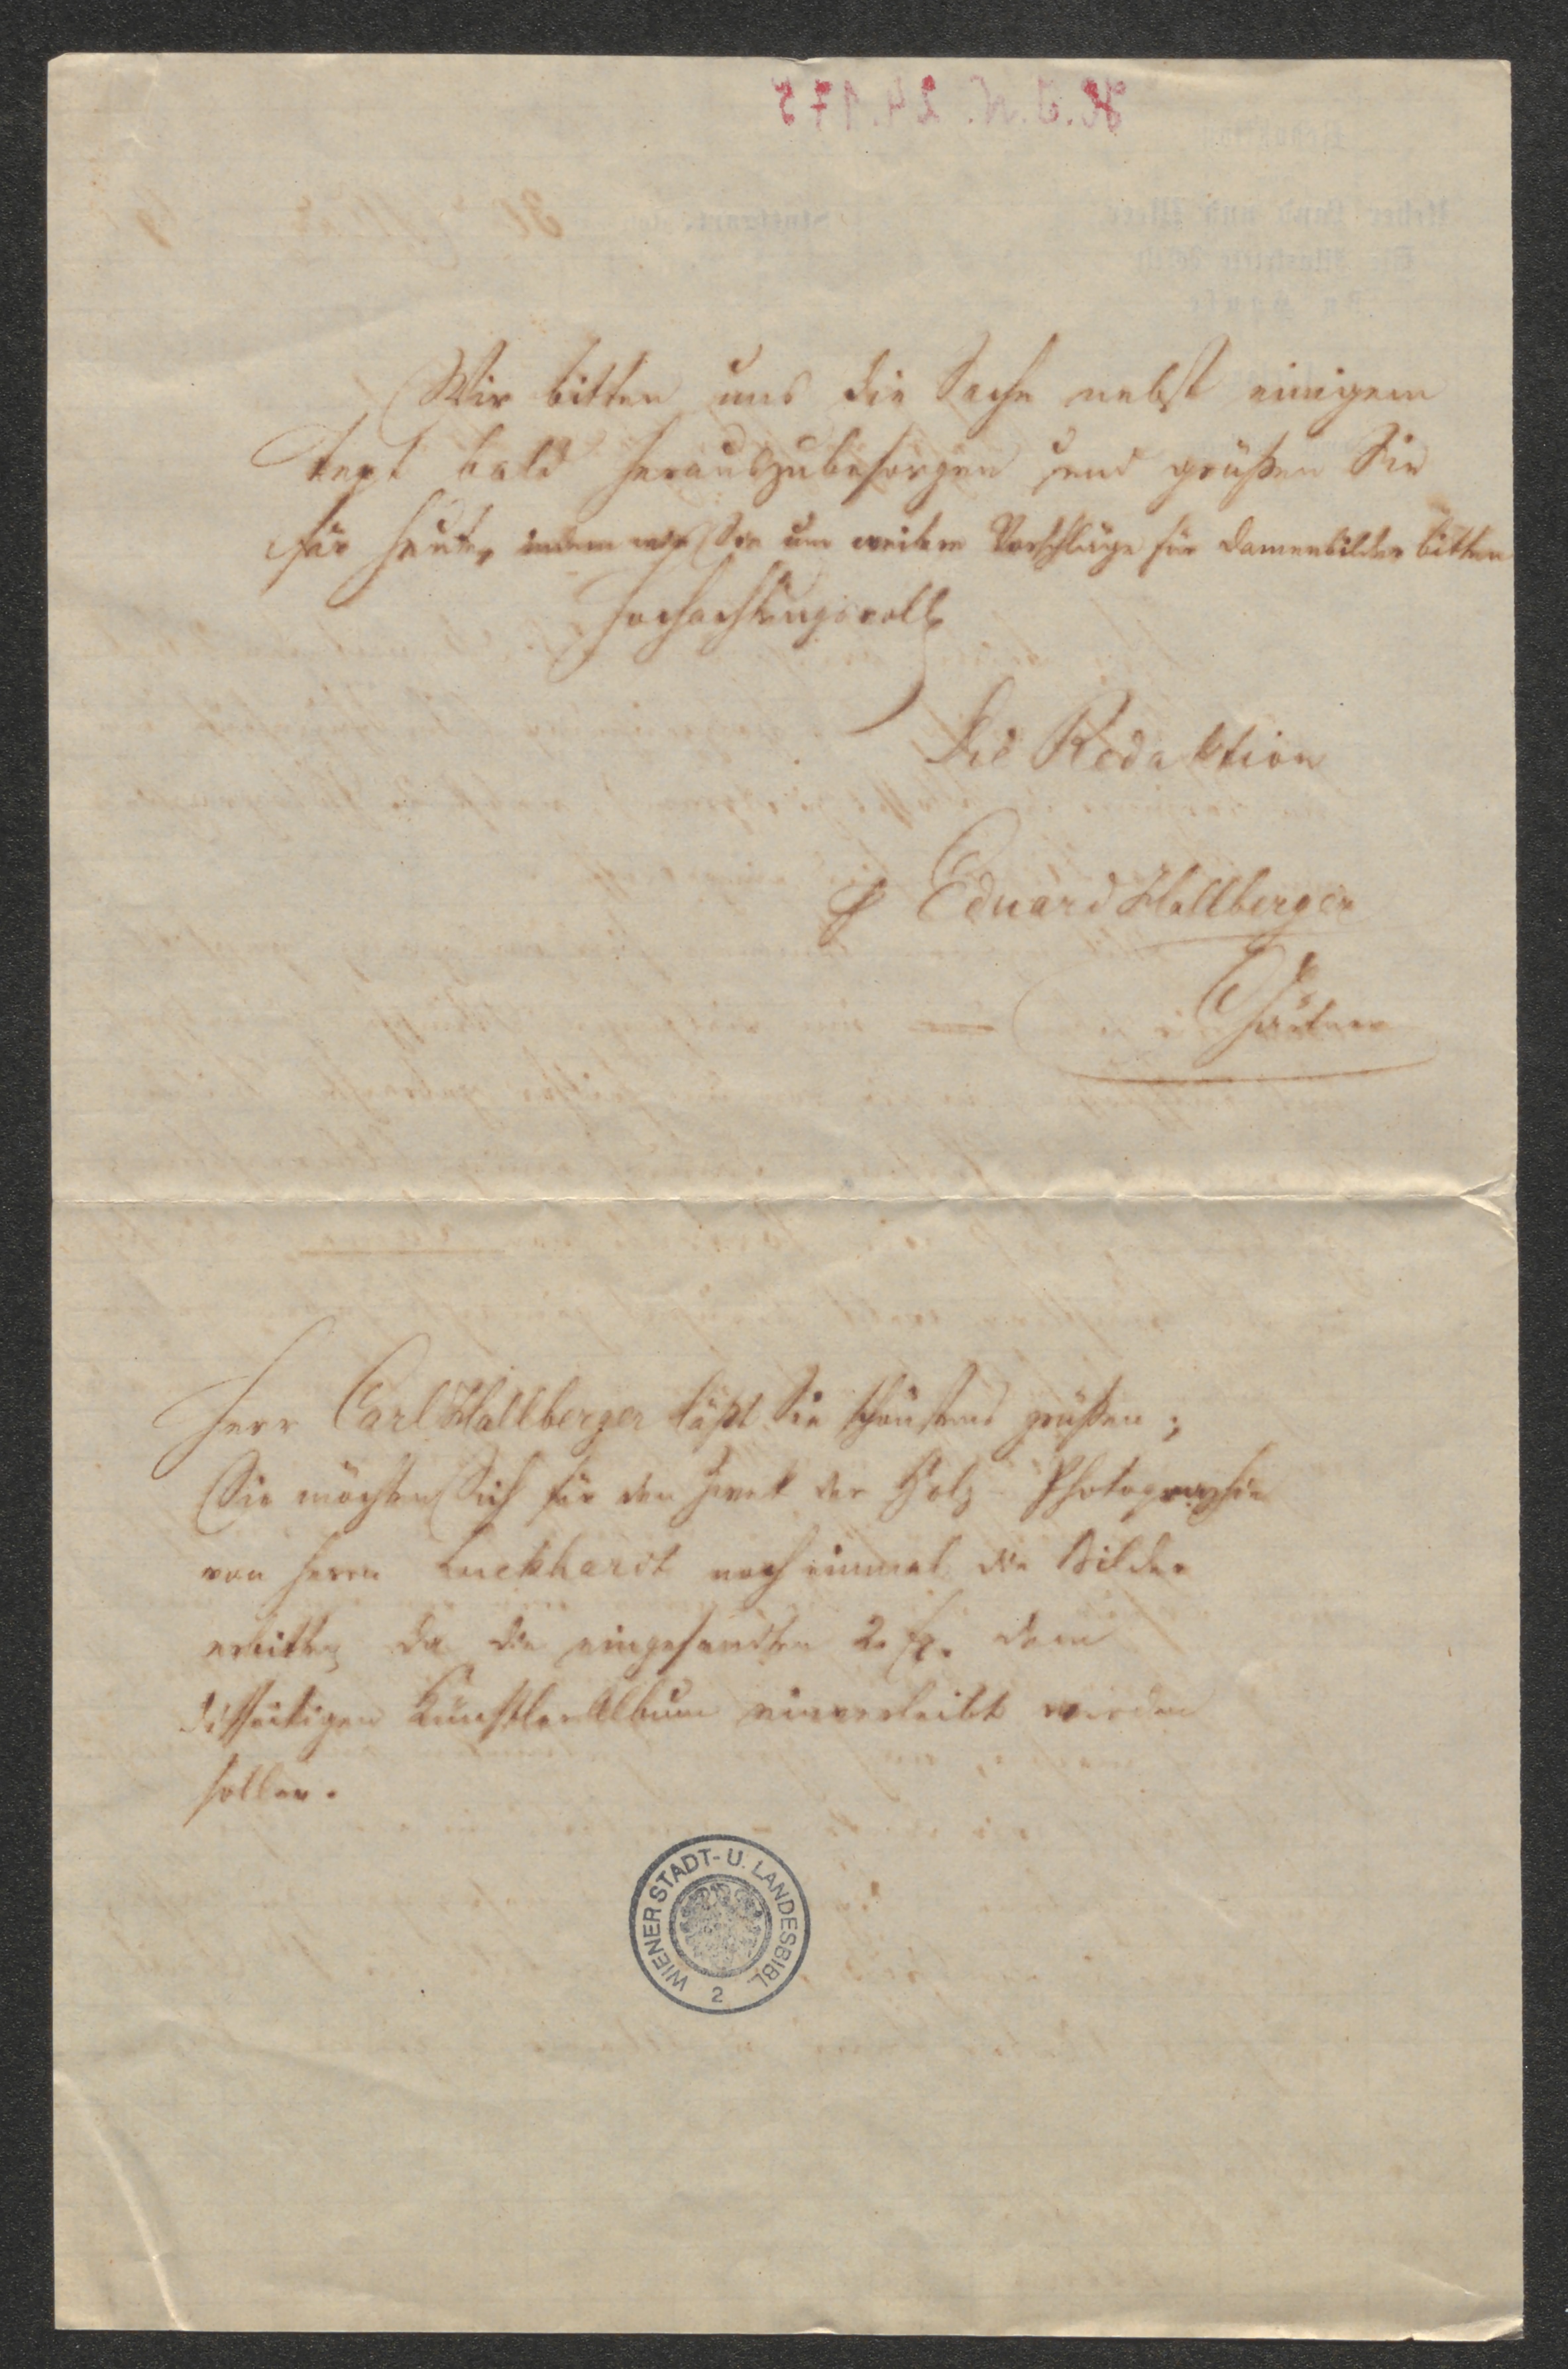 H.I.N. 24.175
Wir bitten uns die Sache nebst einigem
Text bald herauszubesorgen und grüßen Sie
für heute, indem wir Sie um weitere Vorschläge für Damenbilder bitten
hochachtungsvoll
Die Redaktion
p Eduard Hallberger
Herr Carl Hallberger läßt Sie schönstens grüßen;
Sie möchten Sich für den Zwek der Holz-Photographie
von Herrn Luckhardt noch einmal die Bilder
erbitten da die eingesandten 2. Ex. dem
disseitigen Künstler Album einverleibt werden
sollen.
WIENER STADT- U. LANDESBIBL. 2